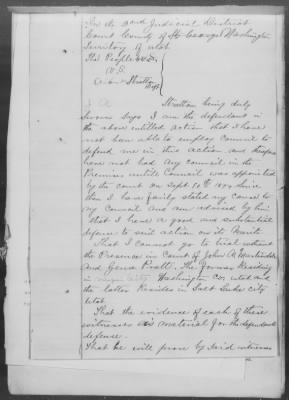 In the 2nd Judicial District
Court County of St George Washington
Territory of Utah
The People &c
vs
Stratton
Deft
J A Stratton being duly
Sworn Says I am the defendant in
the above entitled action that I have
not been able to employ Council to
defend me in this action and
have not had any council in the
Premises untill Council was appointed
by the court on Sept 20th since
then I have fairly stated my cause to
my Council and am advised by him
that I have a good and substantial
defense to said action on its Merits
That I cannot go to trial without
the Presence in Court of John A
and Pratt. The former Residing
in Washington Co. Utah and
the latter Resides in Salt Lake city
Utah
That the evidence of each of these
witnesses is material for the defendants
defense.
That he will prove by said witness